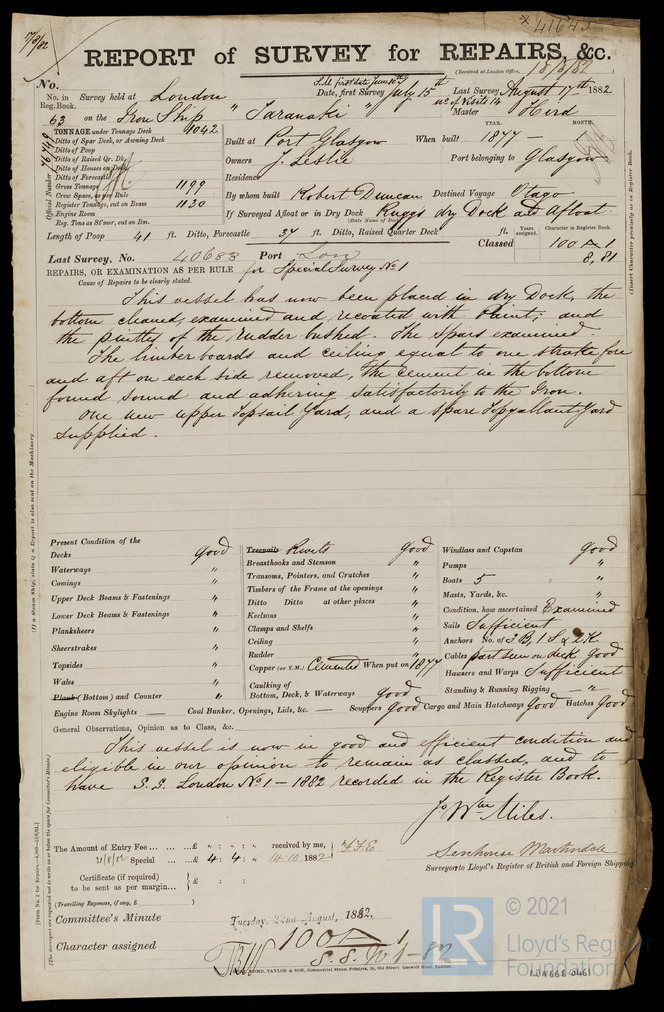 7/8/82
* 41645
REPORT of SURVEY for REPAIRS, &c.
(Received at London Office, 18/8/82
No.
No. in Reg. Book. Survey held at London
Date, first Survey July 15th Last Survey August 17th 1882
No of Visits 14
63 on the Iron Ship " Taranaki " Master Hird
TONNAGE under Tonnage Deck 1042
Ditto of Spar Deck, or Awning Deck
Ditto of Poop
Ditto of Raised Qr. Dk.
Ditto of Houses on Deck
Ditto of Forecastle
Gross Tonnage 1199
Crew Space, as per Rule
Register Tonnage, cut on Beam 1130
Engine Room
Reg. Tons as St'mer, cut on Bm.
Official Number 76749
YEAR. MONTH.
Built at Port Glasgow When built 1877 - 1
Owners J. Leslie Port belonging to Glasgow
Residence
By whom built Robert Duncan Destined Voyage Otago
If Surveyed Afloat or in Dry Dock Ruggs dry Dock and Afloat.
(State Name of Dock)
Length of Poop 41 ft. Ditto, Forecastle 37 ft. Ditto, Raised Quarter Deck ft.
Years assigned. Character in Register Book.
Classed 100 A 1
8,81
Last Survey, No. 40688 Port Lon
REPAIRS, OR EXAMINATION AS PER RULE for Special Survey No 1
Cause of Repairs to be clearly stated.
This vessel has now been placed in dry Dock, the
bottom cleaned, examined and recoated with Paint; and
the pintles of the rudder bushed. The Spars examined
The limber boards and ceiling equal to one strake fore
and aft on each side removed, the cement in the bottom
found sound and adhering satisfactorily to the Iron.
One new upper Topsail Yard, and a spare Topgallant Yard
supplied.
Present Condition of the
Decks good
Waterways "
Comings "
Upper Deck Beams & Fastenings "
Lower Deck Beams & Fastenings "
Planksheers "
Sheerstrakes "
Topsides "
Wales "
Plank (Bottom) and Counter "
Engine Room Skylights — Coal Bunker, Openings, Lids, &c. — Scuppers Good Cargo and Main Hatchways Good Hatches Good
Treenails Rivets good
Breasthooks and Stemson "
Transoms, Pointers, and Crutches "
Timbers of the Frame at the openings "
Ditto Ditto at other places "
Keelsons "
Clamps and Shelfs "
Ceiling "
Rudder "
Copper (or Y.M.) Cemented When put on 1877
Caulking of
Bottom, Deck, & Waterways good
Windlass and Capstan good
Pumps "
Boats 5 "
Masts, Yards, &c. "
Condition, how ascertained Examined
Sails Sufficient
Anchors No. of 3 B, 1 S & 2 K
Cables part seen on deck good
Hawsers and Warps Sufficient
Standing & Running Rigging — " —
General Observations, Opinion as to Class, &c.
This vessel is now in good and efficient condition and
eligible in our opinion to remain as classed, and to
have S.S. London No 1 - 1882 recorded in the Register Book.
Jo Wm Miles.
Senhouse Martindale
Surveyor to Lloyd's Register of British and Foreign Shipping.
The Amount of Entry Fee ... ... £ " : " : " received by me,
21/8/82 Special ... ... £ 4 : 4 : " 14.10 1882
Certificate (if required)
to be sent as per margin... £ : :
(Travelling Expenses, if any, £ )
Committee's Minute Tuesday, 22nd August, 1882.
Character assigned 100 A 1
S.S. No 1 - 82
ROND. TAYLOR & SON, Commercial Steam Printers, London.
(If a Steam Ship, state if a Report is also sent on the Machinery
(Insert Character precisely as in Register Book.
(The Surveyors are requested not to write on or below the space for Committee's Minute)
LR © 2021
Lloyd's Register
Foundation
LON 668-0461